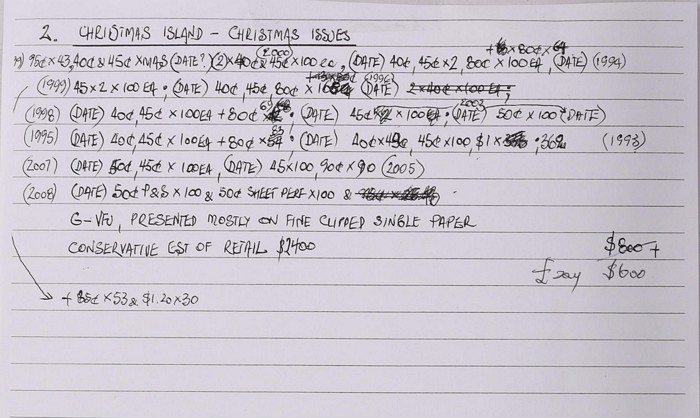 2. CHRISTMAS ISLAND - CHRISTMAS ISSUES
+ 80¢ x 64
(2000)
95¢ x 43, 40¢ & 45¢ XMAS (DATE?) (2) x 40¢ & 45¢ x 100 ea, (DATE) 40¢, 45¢ x 2, 80¢ x 100 EA, (DATE) (1994)
(1996)
(1999) 45 x 2 x 100 EA • (DATE) 40¢, 45¢, 80¢ x (DATE) 2 x 40¢ x 100 EA;
(2003)
(1998) (DATE) 40¢, 45¢ x 100 EA + 80¢ x 68 • (DATE) 45¢ x 2 x 100 EA • (DATE) 50¢ x 100 (DATE)
83
(1995) (DATE) 40¢, 45¢ x 100 EA + 80¢ x : (DATE) 40¢ x 49¢, 45¢ x 100, $1 x • 362 (1993)
(2007) (DATE) 50¢, 45¢ x 100 EA, (DATE) 45 x 100, 90¢ x 90 (2005)
(2008) (DATE) 50¢ P&S x 100 & 50¢ SHEET PERF x 100 &
G-VFU, PRESENTED MOSTLY ON FINE CLIPPED SINGLE PAPER
CONSERVATIVE EST OF RETAIL $2400 $800+
£ say $600
+ 85¢ x 53 & $1.20 x 30